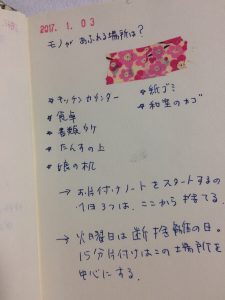 2017. 1. 03
モノが あふれる場所は？
* キッチンカウンター
* 食卓
* 書類ケース
* たんすの上
* 娘の机
* 紙ゴミ
* 和室のカゴ
→ お片付けノートをスタートするの
は、ここから捨てる。
→ 火曜日は断捨離の日。
15分片付けはこの場所を
中心にする。